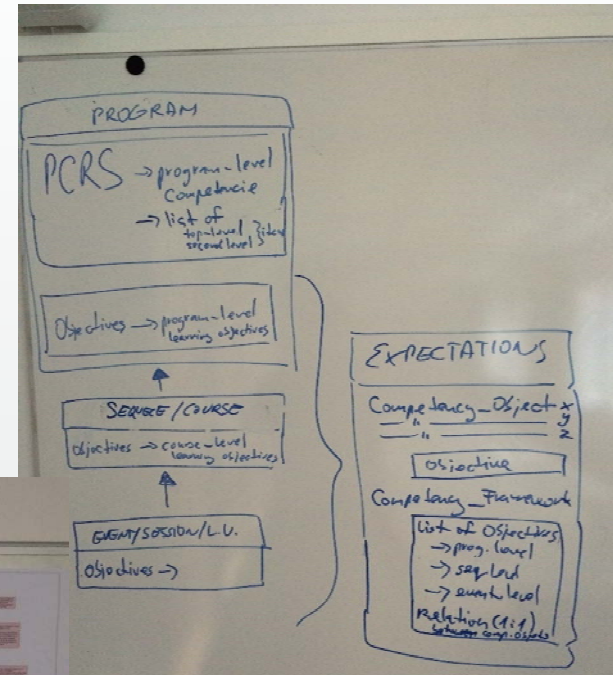 PROGRAM
PCRS → program-level
Competencie
→ list of
top-level
second level } item
Objectives → program-level
learning objectives
/COURSE
Objectives → course-level
learning objectives
EVENT/SESSION/L.V.
Objectives →
EXPECTATIONS
Competency_Object x
— " — y
— " — z
Objective
Competency_Framework
List of Objectives
→ prog. level
→ seq. level
→ event level
Relation (1:1)
between comp. objects